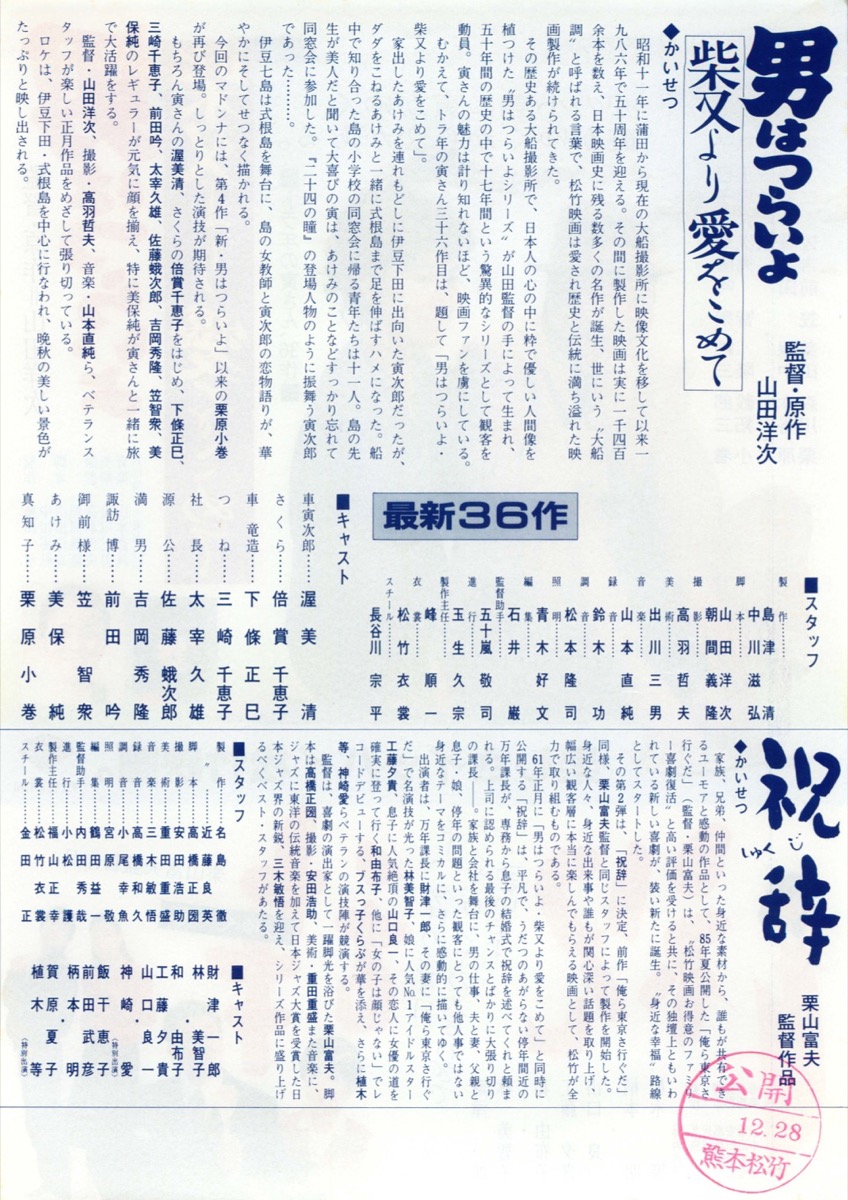 男はつらいよ
柴又より愛をこめて
監督・原作
山田洋次
◆かいせつ
昭和十一年に蒲田から現在の大船撮影所に映像文化を移して以来一
九八六年で五十周年を迎える。その間に製作した映画は実に一千四百
余本を数え、日本映画史に残る数多くの名作が誕生、世にいう〝大船
調〟と呼ばれる言葉で、松竹映画は愛され歴史と伝統に満ち溢れた映
画製作が続けられてきた。
その歴史ある大船撮影所で、日本人の心の中に粋で優しい人間像を
植つけた〝男はつらいよシリーズ〟が山田監督の手によって生まれ、
五十年間の歴史の中で十七年間という驚異的なシリーズとして観客を
動員。寅さんの魅力は計り知れないほど、映画ファンを虜にしている。
むかえて、トラ年の寅さん三十六作目は、題して「男はつらいよ・
柴又より愛をこめて」。
家出したあけみを連れもどしに伊豆下田に出向いた寅次郎だったが、
ダダをこねるあけみと一緒に式根島まで足を伸ばすハメになった。船
中で知り合った島の小学校の同窓会に帰る青年たちは十一人。島の先
生が美人だと聞いて大喜びの寅は、あけみのことなどすっかり忘れて
同窓会に参加した。『二十四の瞳』の登場人物のように振舞う寅次郎
であった………。
伊豆七島は式根島を舞台に、島の女教師と寅次郎の恋物語りが、華
やかにそしてせつなく描かれる。
今回のマドンナには、第4作「新・男はつらいよ」以来の栗原小巻
が再び登場。しっとりとした演技が期待される。
もちろん寅さんの渥美清、さくらの倍賞千恵子をはじめ、下條正巳、
三崎千恵子、前田吟、太宰久雄、佐藤蛾次郎、吉岡秀隆、笠智衆、美
保純のレギュラーが元気に顔を揃え、特に美保純が寅さんと一緒に旅
で大活躍をする。
監督・山田洋次、撮影・高羽哲夫、音楽・山本直純ら、ベテランス
タッフが楽しい正月作品をめざして張り切っている。
ロケは、伊豆下田・式根島を中心に行なわれ、晩秋の美しい景色が
たっぷりと映し出される。
最新36作
■スタッフ
製作……島津清
中川滋弘
脚本……山田洋次
朝間義隆
撮影……高羽哲夫
美術……出川三男
音楽……山本直純
録音……鈴木功
調音……松本隆司
照明……青木好文
編集……石井巌
監督助手……五十嵐敬司
進行……玉生久宗
製作主任……峰順一
衣裳……松竹衣裳
スチール……長谷川宗平
■キャスト
車寅次郎……渥美清
さくら……倍賞千恵子
車竜造……下條正巳
つね……三崎千恵子
社長……太宰久雄
源公……佐藤蛾次郎
満男……吉岡秀隆
諏訪博……前田吟
御前様……笠智衆
あけみ……美保純
真知子……栗原小巻
祝辞
しゅくじ
栗山富夫
監督作品
◆かいせつ
家族、兄弟、仲間といった身近な素材から、誰もが共有でき
るユーモアと感動の作品として、85年夏公開した「俺ら東京さ
行ぐだ」(監督・栗山富夫)は、〝松竹映画お得意のファミリ
ー喜劇復活〟と高い評価を受けると共に、その独壇上ともいわ
れている新しい喜劇が、装い新たに誕生。〝身近な幸福〟路線
としてスタートした。
その第2弾は、「祝辞」に決定、前作「俺ら東京さ行ぐだ」
同様、栗山富夫監督と同じスタッフによって製作を開始した。
身近な人々、身近な出来事や誰もが関心深い話題を取り上げ、
幅広い観客層に本当に楽しんでもらえる映画として、松竹が全
力で取り組むものである。
61年正月に「男はつらいよ・柴又より愛をこめて」と同時に
公開する「祝辞」は、平凡で、うだつのあがらない停年間近の
万年課長が、専務から息子の結婚式で祝辞を述べてくれと頼ま
れる。上司に認められる最後のチャンスとばかりに大張り切り
の課長——。家族と会社を舞台に、男の仕事、夫と妻、父親と
息子・娘、停年の問題といった観客にとっても他人事ではない
身近なテーマをコミカルに、さらに感動的に描いてゆく。
出演者は、万年課長に財津一郎、その妻に「俺ら東京さ行ぐ
だ」で名演技が光った林美智子、娘に人気No.1アイドルスター
工藤夕貴、息子に人気絶頂の山口良一、その恋人に女優の道を
確実に登って行く和由布子、他に「女の子は顔じゃない」でレ
コードデビューする、ブスっ子くらぶが華を添え、さらに植木
等、神崎愛らベテランの演技陣が競演する。
監督は、喜劇の演出家として一躍脚光を浴びた栗山富夫。脚
本は高橋正圀、撮影・安田浩助、美術・重田重盛また音楽に、
ジャズに東洋の伝統音楽を加えて日本ジャズ大賞を受賞した日
本ジャズ界の新鋭、三木敏悟を迎え、シリーズ作品に盛り上げ
るべくベスト・スタッフがあたる。
■スタッフ
製作……名島徹
〃……近藤良英
脚本……高橋正圀
撮影……安田浩助
美術……重田重盛
音楽……三木敏悟
録音……小尾幸魚
調音……高橋和久
照明……宮田敬
編集……鶴田益一
監督助手……内田
進行……小松
製作主任……福山正幸
衣裳……松竹衣裳
スチール……金田正
■キャスト
財津一郎
林美智子
和由布子
工藤夕貴
山口良一
神崎愛(特別出演)
飯田恵子
前田武彦
柄本明
賀原夏子
植木等(特別出演)
公開
12.28
熊本松竹